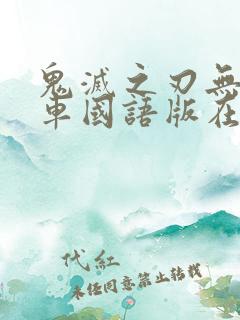 鬼滅之刃無
車國語版在
代紅
未经同意禁止转载